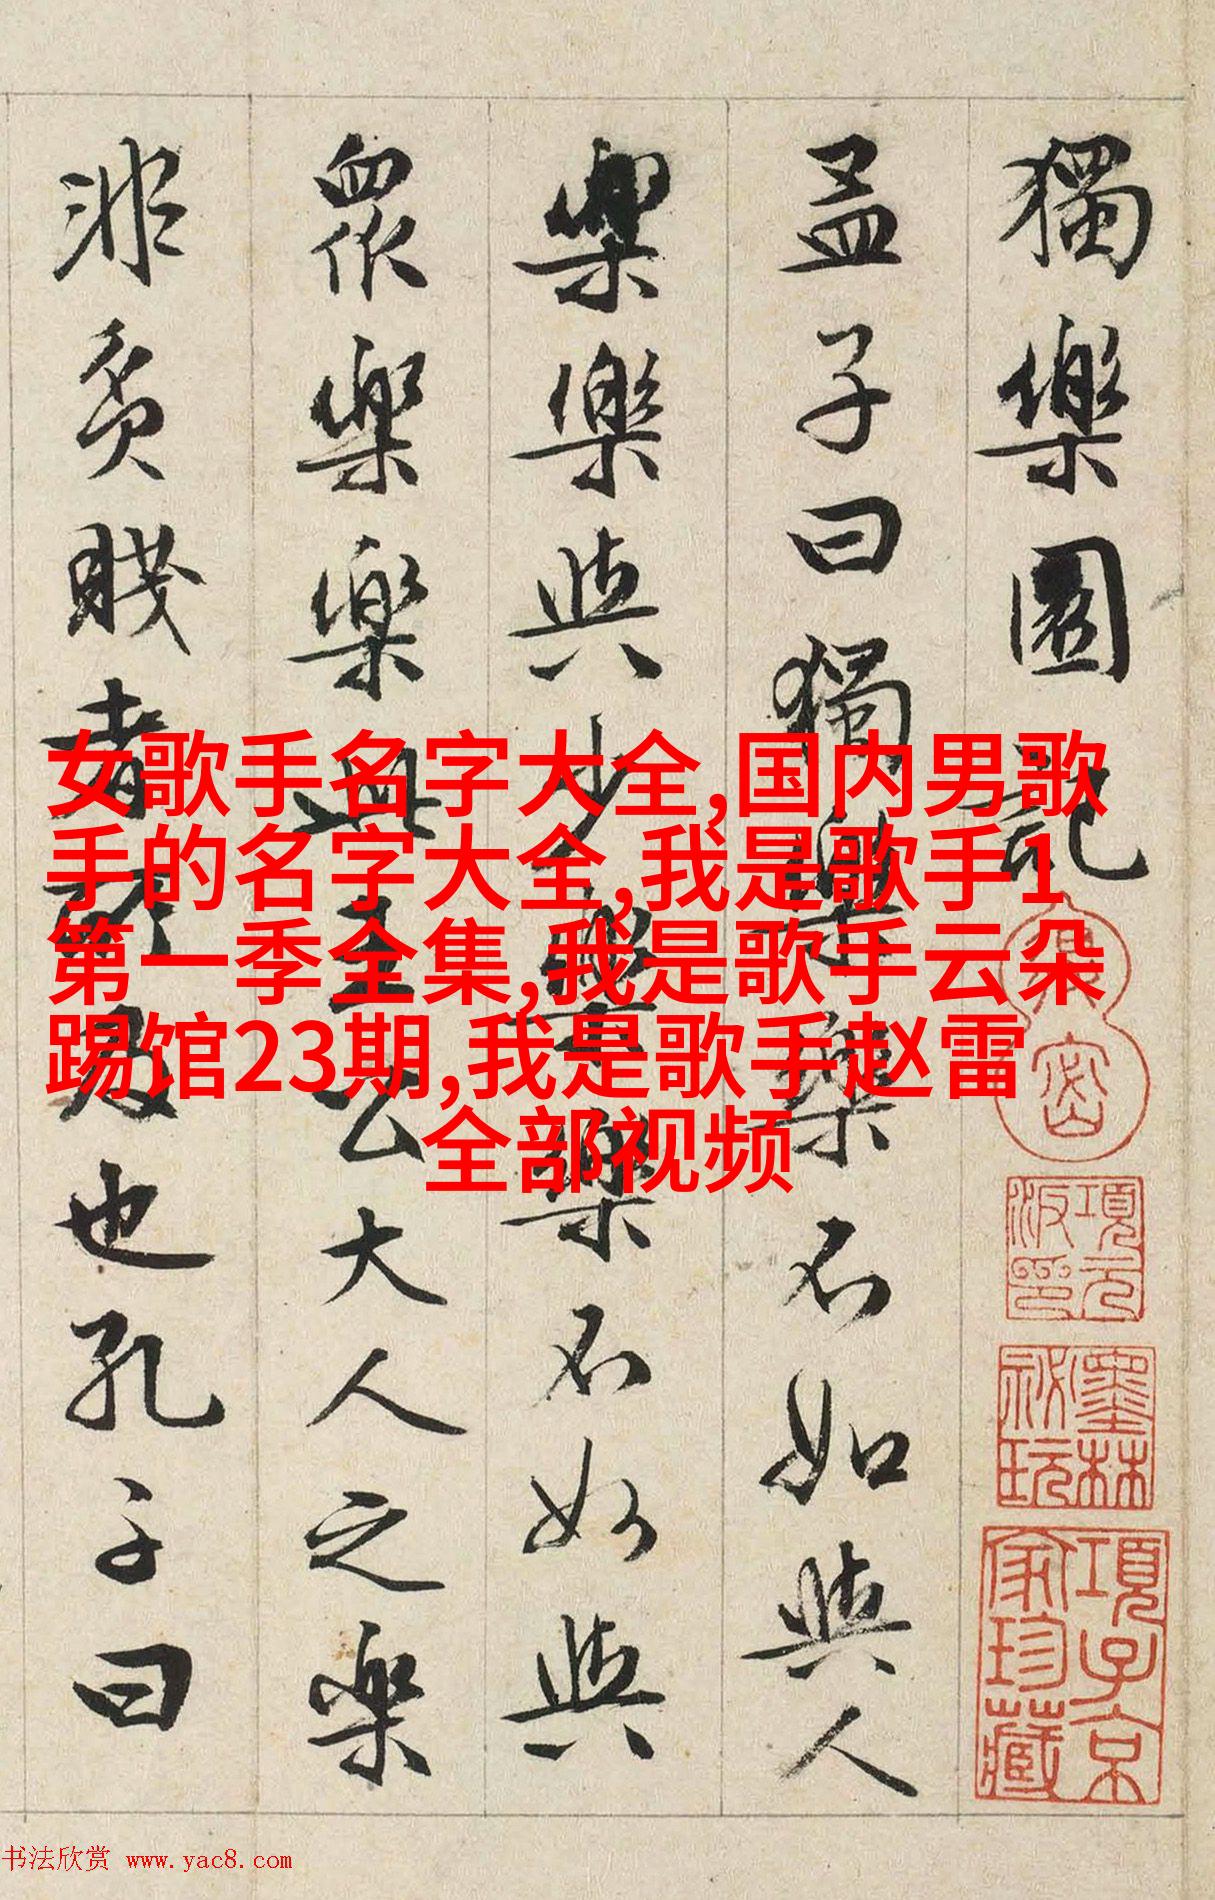 獨樂園記
孟子曰獨樂樂不如與人
樂樂與少樂樂不如與
眾樂樂此王公大人之樂
非貧賤者所及也孔子曰
女歌手名字大全,国内男歌
手的名字大全,我是歌手1
第一季全集,我是歌手云朵
踢馆23期,我是歌手赵雷
全部视频
項元汴印
墨林祕玩
項子京家珍藏
书法欣赏 www.yac8.com